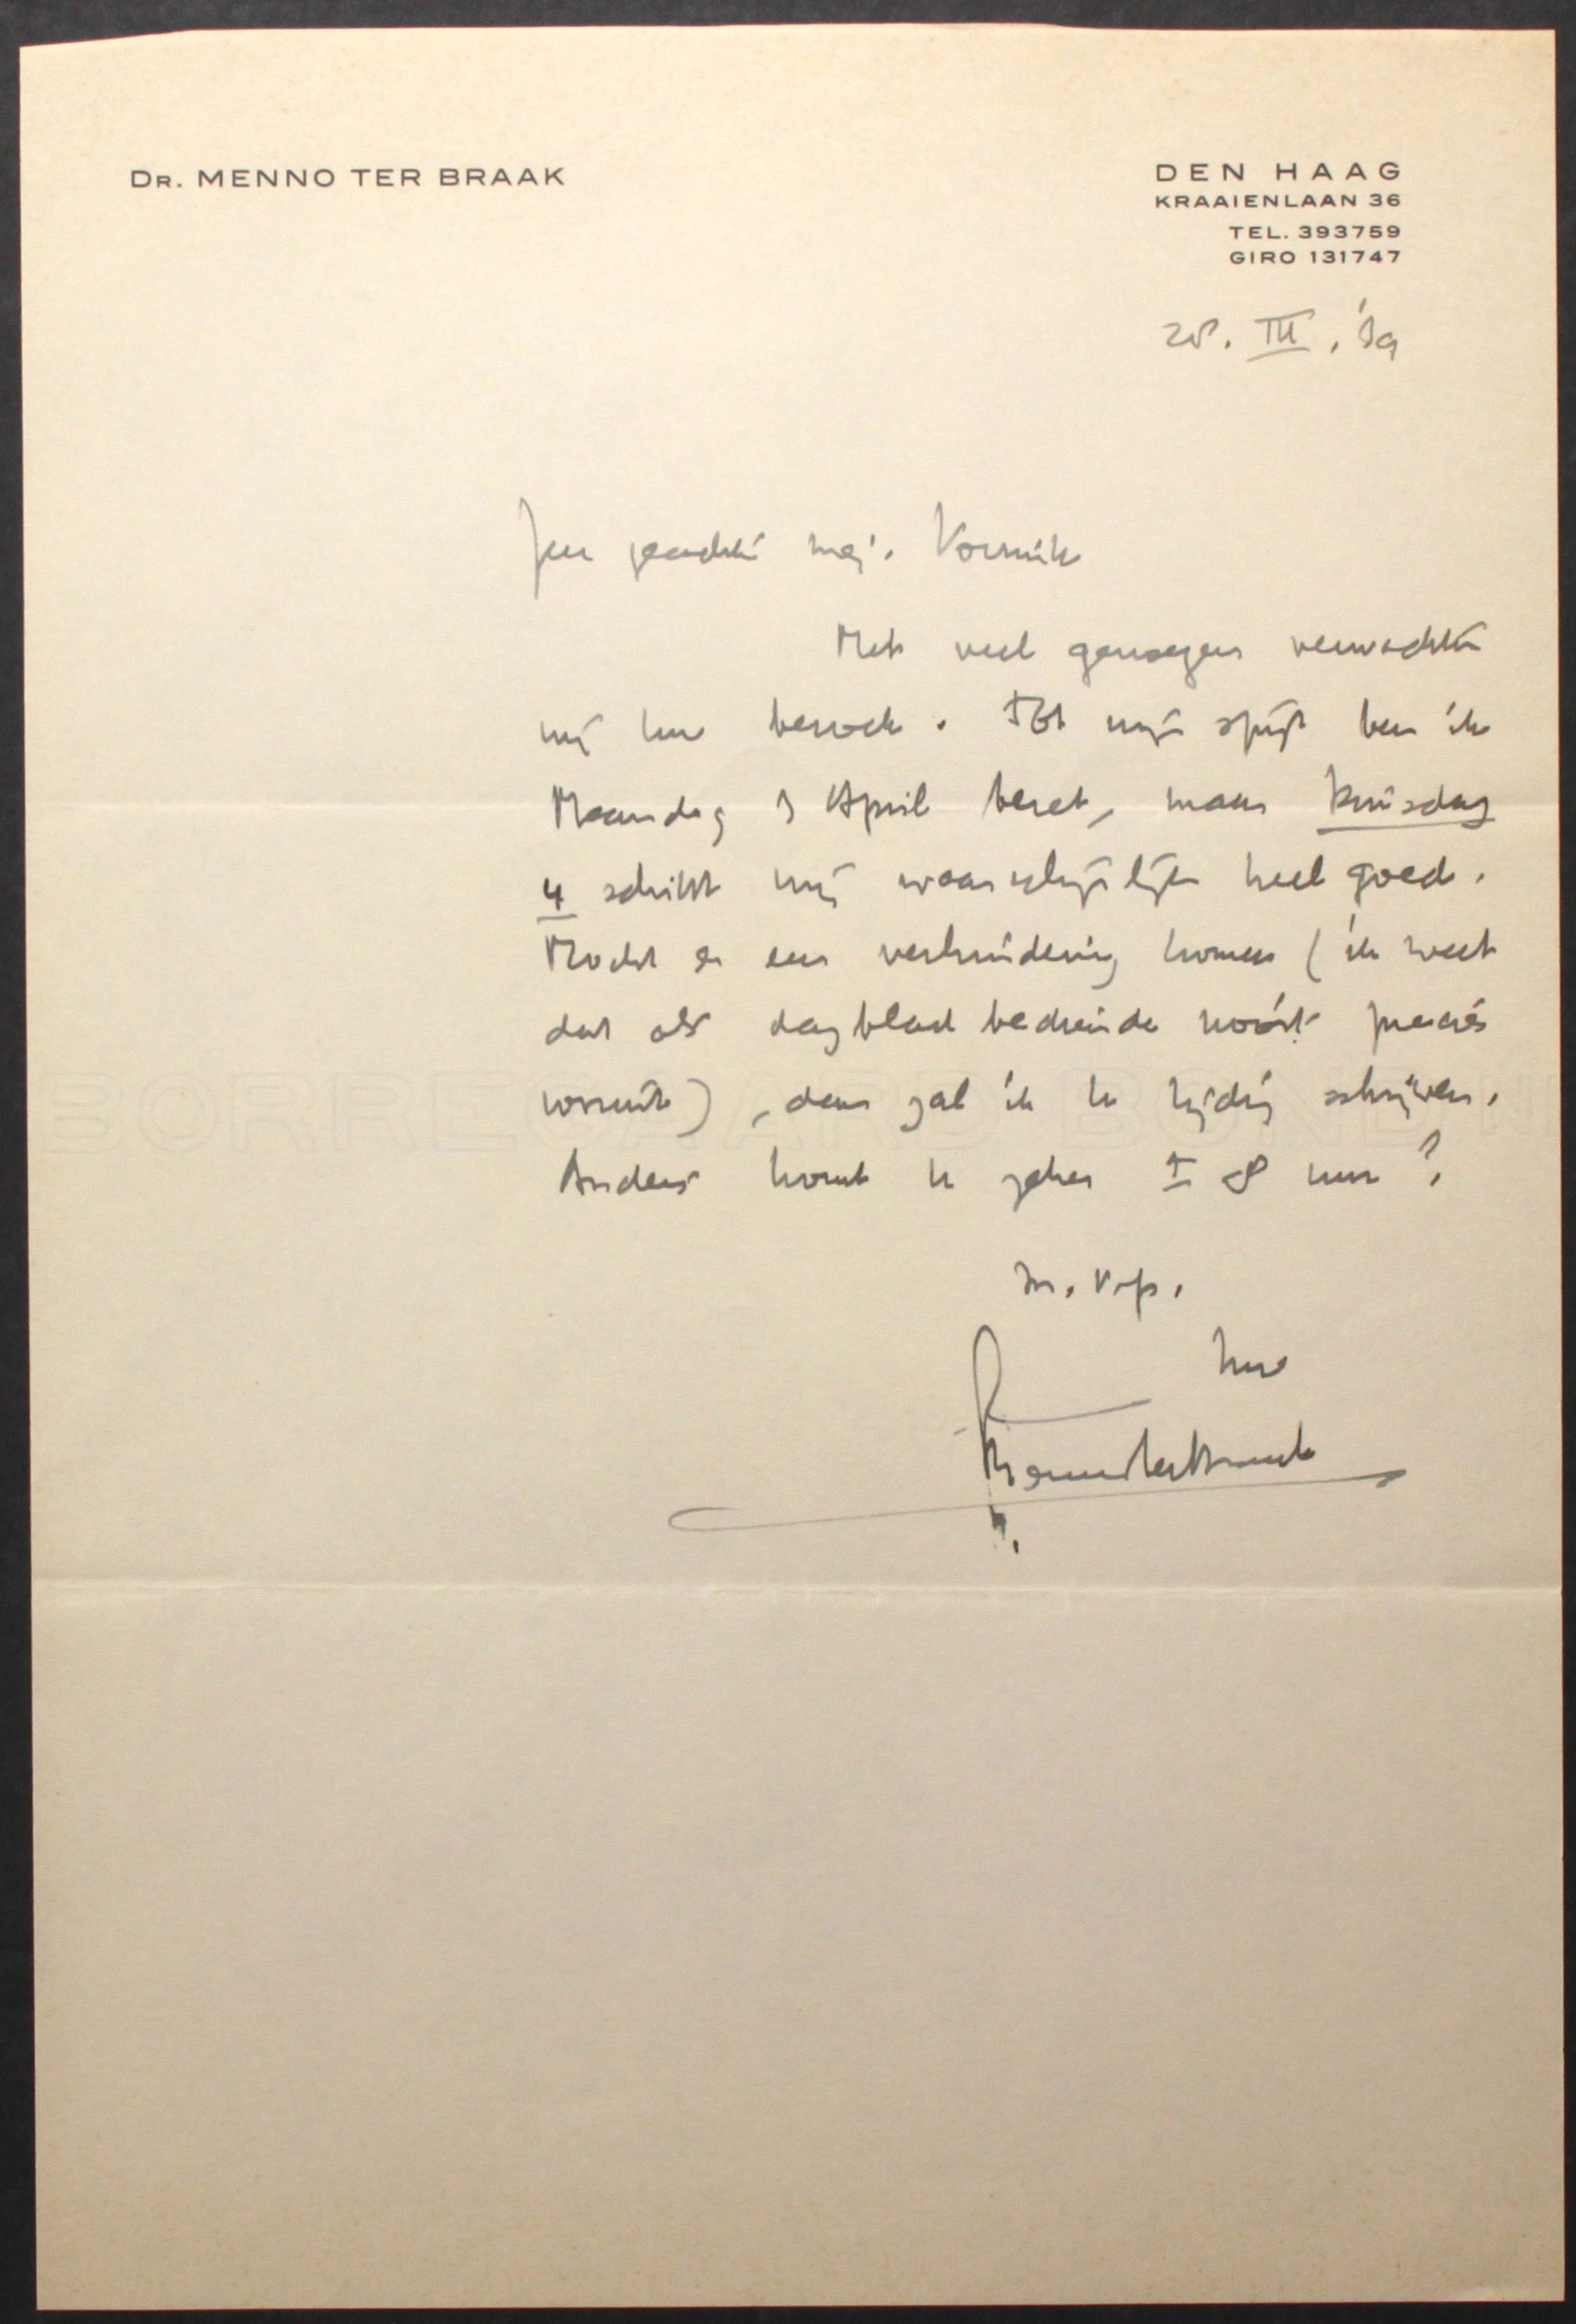 DR. MENNO TER BRAAK
DEN HAAG
KRAAIENLAAN 36
TEL. 393759
GIRO 131747
25. III. '39
Zeer geachte mej. Vormink
Met veel genoegen verwachten
wij Uw bezoek. Tot mijn spijt ben ik
Maandag 3 April bezet, maar Dinsdag
4 schikt mij waarschijnlijk heel goed.
Mocht er een verhindering komen (ik weet
dat als dagblad bediende nóóit precies
vooruit), dan zal ik U tijdig schrijven.
Anders komt U zeker ± 8 uur?
m. v. gr.
Uw
Menno ter Braak